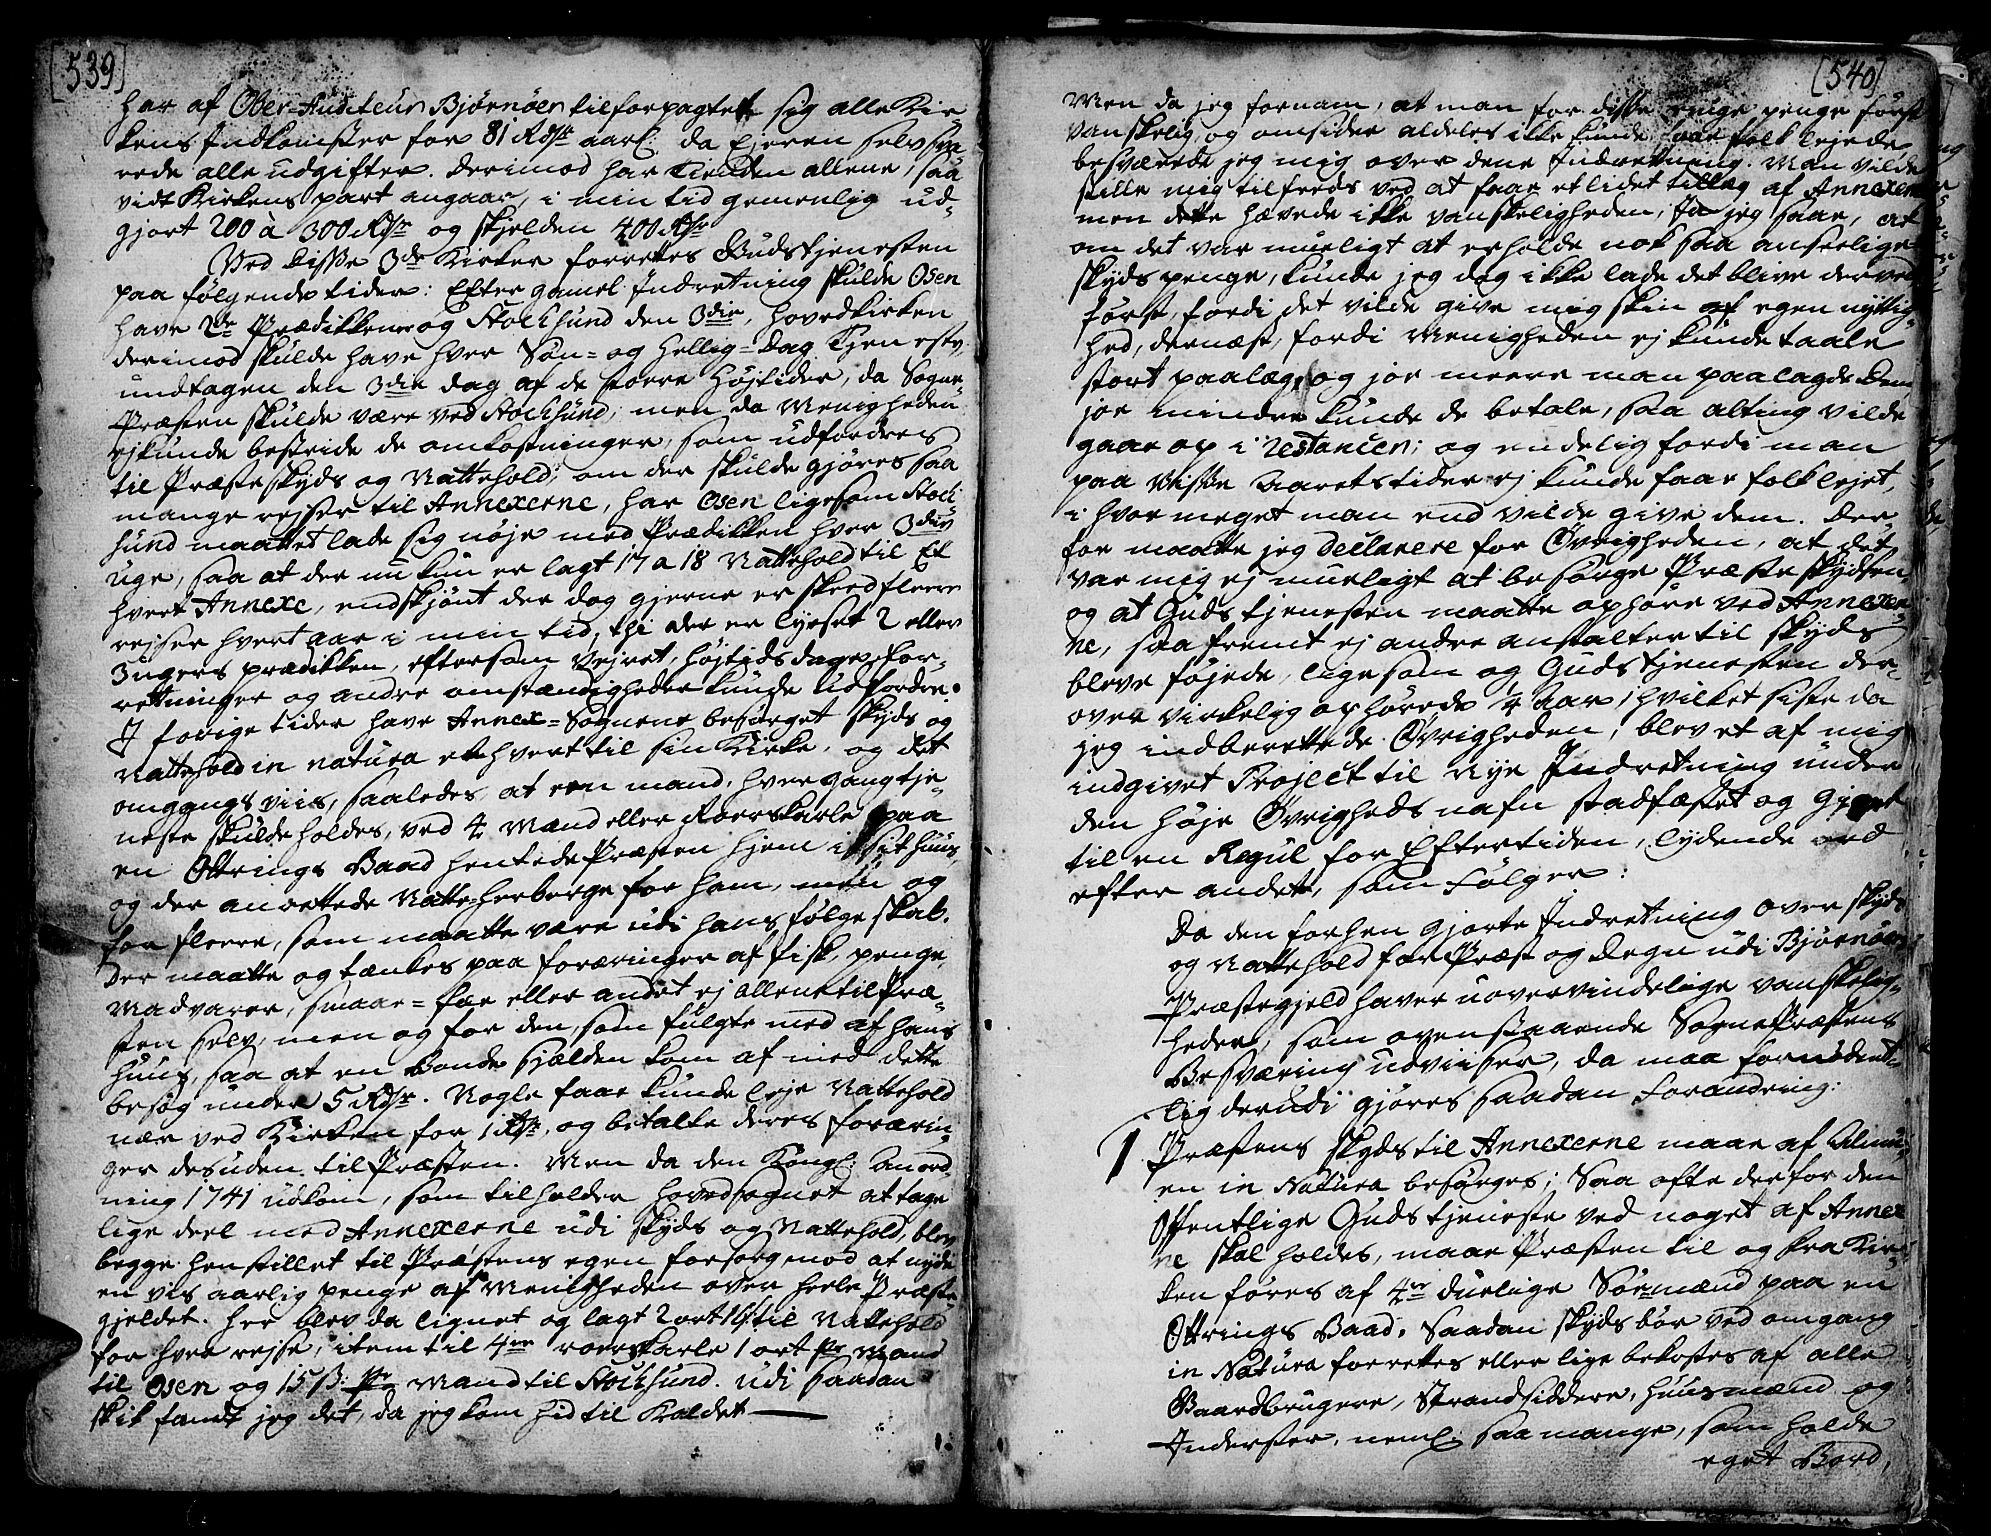 [539]
har af Ober-Auditeur Bjørnøer tilforpagtet sig alle Kir-
kens Indkomster for 81 Rdlr aarl. da Ejeren selv sva-
rede alle udgifter. Derimod har Tienden allene, saa
vidt Kirkens part angaar, i min tid gemenlig ud-
gjort 200 à 300 Rdlr og skjelden 400 Rdlr
Ved disse 3de Kirker forrettes Gudstjenesten
paa følgende tider: Efter gamel Indretning skulde Osen
have 2de Prædikkener og Stocksund den 3die, hovedkirken
derimod skulde have hver Søn- og Hellig-Dag Tjeneste,
undtagen den 3die dag af de store Højtider, da Sogne-
Præsten skulde være ved Stocksund; men da Menigheden
ej kunde bestride de omkostninger, som udfordres
til Præsteskyds og Nattehold, om der skulde gjøres saa
mange rejser til Annexerne, har Osen ligesom Stock-
sund maattet lade sig nøje med Prædikken hver 3die
uge, saa at der nu kun er lagt 17 a 18 Nattehold til Et
hvert Annexe, endskjønt der dog gjerne er skeed fleere
rejser hvert aar i min tid, thi der er lyset 2 eller
3 ugers prædikken, eftersom Vejret, højtidsdage, for-
rettninger og andre omstændigheder kunde udfordre.
I forige tider have Annex-Sognene besørget Skyds og
Nattehold in natura ethvert til sin Kirke, og det
omgangsviis, saaledes at een mand, hver gang tje-
neste skulde holdes, ved 4 Mænd eller Roerskarle paa
en Ottrings Baad hentede Præsten hjem i sit huus,
og der anrettede Natte-herberge for ham, men og
for fleere, som maatte være udi hans følgeskab.
Der maatte og tænkes paa foræringer af fisk, penge,
Madvarer, smaae-fæe eller andet ej allene til Præ-
sten selv, men og for den, som fulgte med af hans
Huus, saa at en Bonde sjælden kom af med dette
besøg under 5 Rdlr. Nogle faae kunde leje Nattehold
nær ved Kirken for 1 Rdlr, og betalte deres forærin-
ger desuden til Præsten. Men da den Kongl. anord-
ning 1741 udkom, som tilholder hovedsognet at tage
lige deel med Annexerne udi Skyds og Nattehold, blev
begge henstillet til Præstens egen forsorg mod at nyde
en vis aarlig penge af Menigheden over heele Præste-
gjeldet. her blev da lignet og lagt 2 ort 16 ß til Nattehold
for hver rejse, item til 4re roerskarle 1 ort pr Mand
til Osen og 15 ß: pr Mand til Stocksund. udi saadan
skik fandt jeg det, da jeg kom hid til Kaldet.
[540]
Men da jeg fornam, at man for disse ringe penge først
vanskelig og omsider aldeles ikke kunde faae folk lejede,
besværede jeg mig over dene Indretning. Man vilde
stille mig tilfreds ved at faae et lidet tillæg af Annexerne
men dette hævede ikke vanskeligheden; Ja jeg saae, at
om det var mueligt at erholde nok saa anseelige
skydspenge, kunde jeg dog ikke lade det blive derved
først, fordi det vilde give mig skin af egennyttig-
hed, dernæst, fordi Menigheden ej kunde taale
stort paalæg, og jor meere man paalagde Dem,
jor mindre kunde de betale, saa alting vilde
gaae op i restancer; og endelig fordi man
paa Visse Aarets tider ej kunde faae folk lejet,
i hvor meget man end vilde give dem. Der-
for maatte jeg declarere for Øvrigheden, at det
var mig ej mueligt at besørge Præsteskydsen,
og at Gudstjenesten maatte ophøre ved Annexer-
ne, saafremt ej andre anstalter til skyds
bleve føjede, ligesom og Gudstjenesten der-
over virkelig ophørede 1/4 Aar, hvilket siste da
jeg indberettede Øvrigheden, blev et af mig
indgivet Project til Nye Indretning under
den høje Øvrigheds nafn stadfæstet og gjort
til en Regul for Eftertiden, lydende ord
efter andet, som følger:
Da den forhen gjorte Indretning over skyds
og Nattehold for Præst og Degn udi Bjørnøer
Præstegjeld haver uovervindelige vanskelig-
heder, som ovenstaaende SognePræstens
Besværing udviiser, da maa fornødent-
lig derudi gjøres saadan Forandring:
1. Præstens skyds til Annexerne maae af Almu-
en in Natura besørges; Saa ofte derfor den
Offentlige Gudstjeneste ved noget af Annexer-
ne skal holdes, maae Præsten til og fra Kir-
ken føres af 4re duelige Sørmænd paa en
Ottrings Baad. Saadan skyds bør ved omgang
in Natura forrettes eller lige bekostes af alle
Gaardbrugere, Strandsiddere, huusmænd og
Inderster, neml. saa mange, som holde
eget Bord,